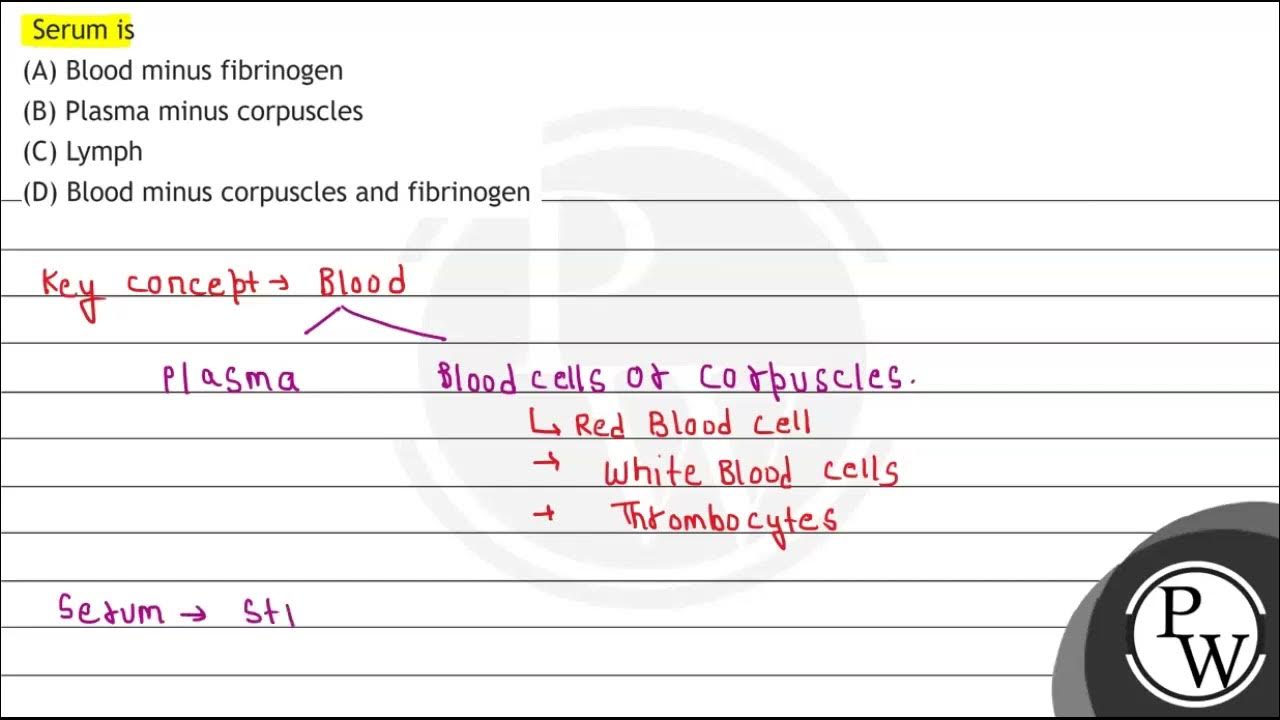 Serum is
(A) Blood minus fibrinogen
(B) Plasma minus corpuscles
(C) Lymph
(D) Blood minus corpuscles and fibrinogen
Key concept → Blood
Plasma Blood cells or corpuscles.
↳ Red Blood cell
→ White Blood cells
→ Thrombocytes
Serum →
PW
PW